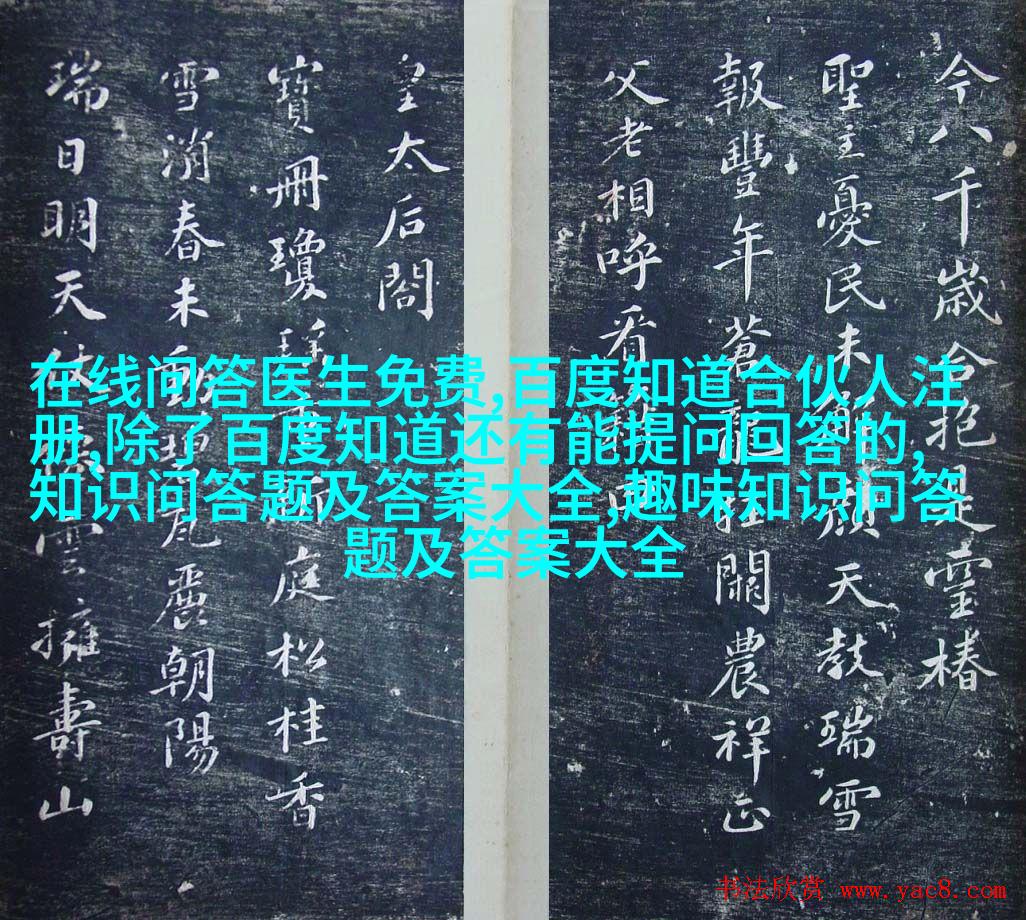 今八千歲合抱是靈椿
聖主憂民未解顏天教瑞雪
報豐年蒼龍挂闕農祥正
父老相呼看田
皇太后閣
寶冊瓊瑤重新庭松桂香
雪消春未動碧瓦麗朝陽
瑞日明天仗仙雲擁壽山
在线问答医生免费,百度知道合伙人注
册,除了百度知道还有能提问回答的,
知识问答题及答案大全,趣味知识问答
题及答案大全
书法欣赏 www.yac8.com